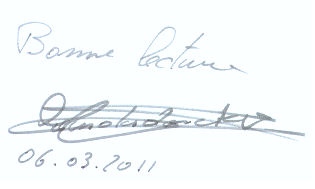 Bonne lecture
06.03.2011